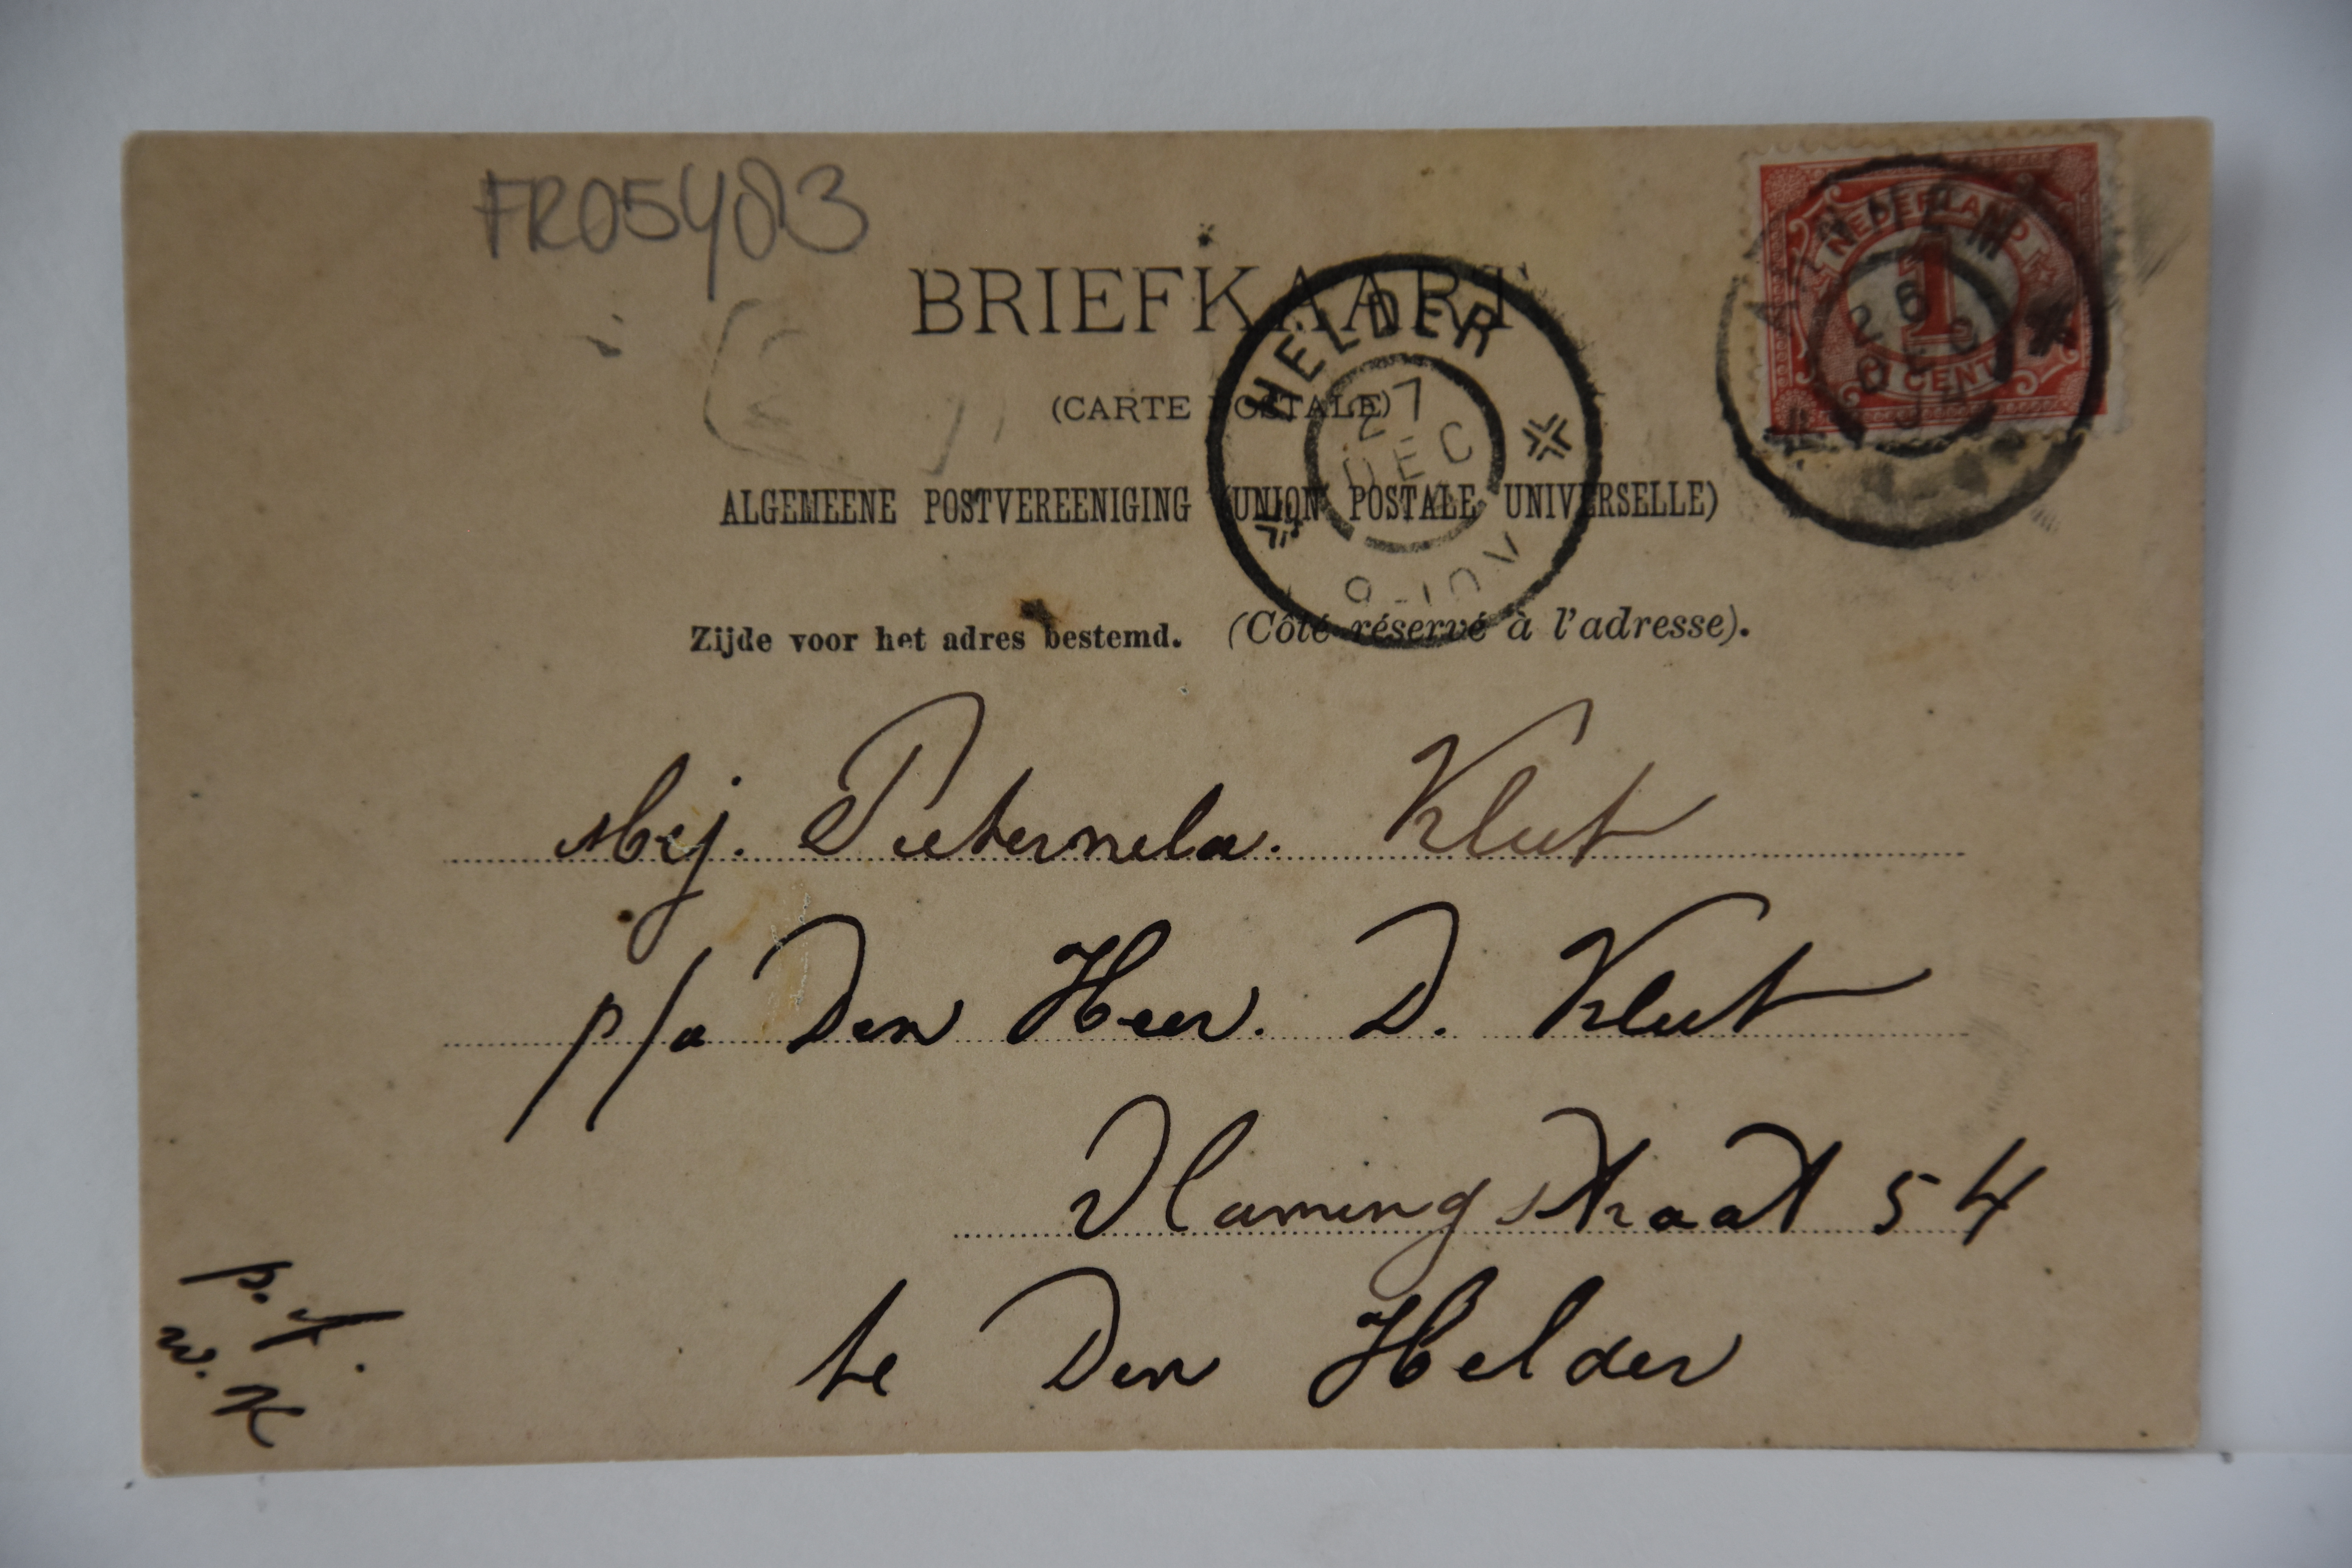 FR05403
BRIEFKAART
(CARTE POSTALE)
ALGEMEENE POSTVEREENIGING (UNION POSTALE UNIVERSELLE)
Zijde voor het adres bestemd. (Côté réservé à l'adresse).
NEDERLAND
1
1 CENT
26
DEC
HELDER
27
DEC
9-10V
Mej. Pieternela. Klut
p/a Den Heer. D. Klut
Vlamingstraat 54
te Den Helder
p. f.
w. K